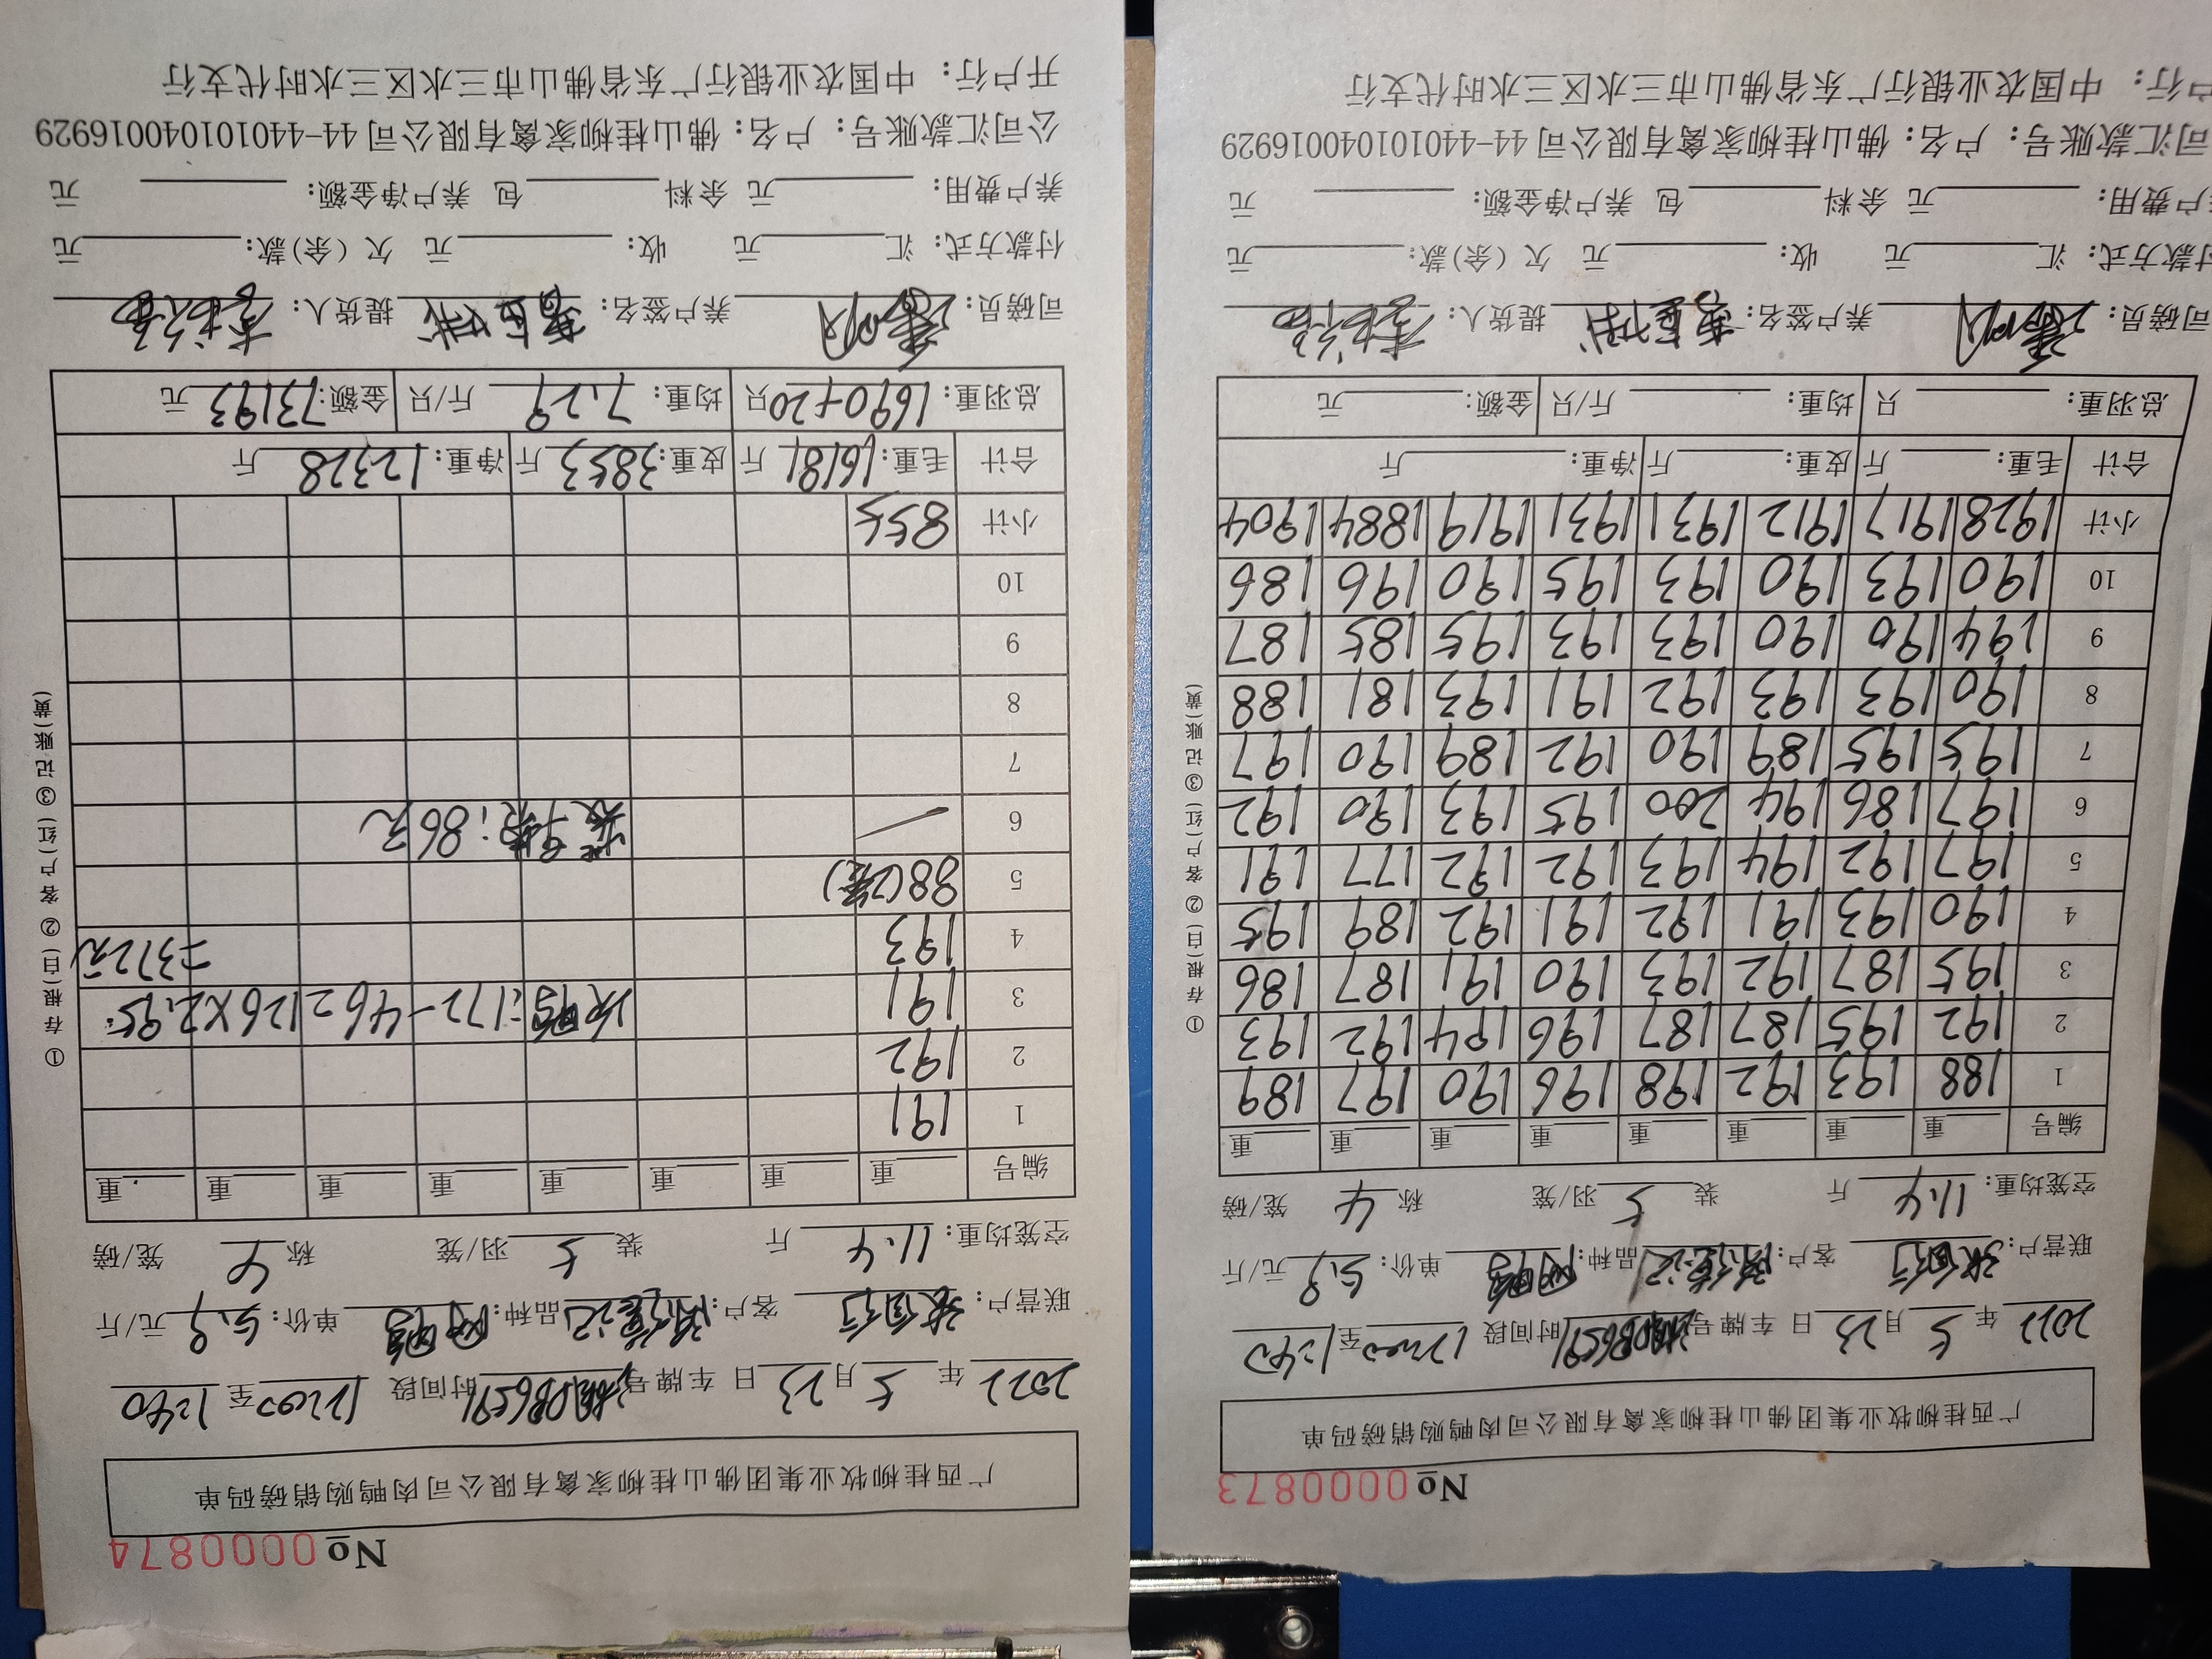 №0000873
广西桂柳牧业集团佛山桂柳家禽有限公司肉鸭购销磅码单
2022年5月23日 车牌号 时间段12:00至1:40
联营户: 客户: 品种: 单价:5.9元/斤
空笼均重:11.4斤 装5羽/笼 称4笼/磅
编号 重 重 重 重 重 重 重 重
1 188 193 192 198 196 190 197 189
2 192 195 187 187 196 194 192 193
3 195 187 192 193 190 191 187 186
4 190 193 191 192 191 192 189 195
5 197 192 194 193 192 192 177 191
6 197 186 194 200 195 193 190 192
7 195 195 189 190 192 189 190 197
8 190 193 193 192 191 193 181 188
9 194 190 190 193 193 195 185 187
10 190 193 190 193 195 190 196 186
小计 1928 1917 1912 1931 1931 1919 1884 1904
合计 毛重: 斤 皮重: 斤 净重: 斤
总羽重: 只 均重: 斤/只 金额: 元
司磅员: 养户签名: 提货人:
付款方式: 汇 元 收: 元 欠(余)款: 元
户费用: 元 余料 包 养户净金额: 元
司汇款账号: 户名: 佛山桂柳家禽有限公司 44-440101040016929
户行: 中国农业银行广东省佛山市三水区三水时代支行
①存根(白) ②客户(红) ③记账(黄)
№0000874
广西桂柳牧业集团佛山桂柳家禽有限公司肉鸭购销磅码单
2022年5月23日 车牌号 时间段12:00至1:40
联营户: 客户: 品种: 单价:5.9元/斤
空笼均重:11.4斤 装5羽/笼 称4笼/磅
编号 重 重 重 重 重 重 重 重
1 191
2 192
3 191 次鸭:172-46=126×2.95
4 193 =372元
5 88(2笼)
6 装车费:86元
7
8
9
10
小计 855
合计 毛重:16181斤 皮重:3853斤 净重:12328斤
总羽重:1690+20只 均重:7.29斤/只 金额:73193元
司磅员: 养户签名: 提货人:
付款方式: 汇 元 收: 元 欠(余)款: 元
养户费用: 元 余料 包 养户净金额: 元
公司汇款账号: 户名: 佛山桂柳家禽有限公司 44-440101040016929
开户行: 中国农业银行广东省佛山市三水区三水时代支行
①存根(白) ②客户(红) ③记账(黄)